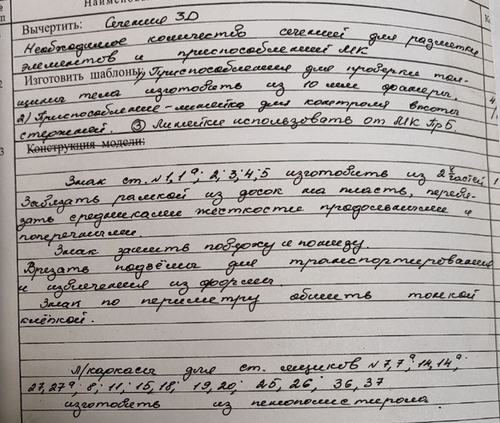 Наименова
Вычертить: Сечения 3D
Необходимое количество сечений для разметки
элементов и приспособлений МК
Изготовить шаблоны: 1) Приспособления для проверки тол-
щины тела изготовить из 10 мм фанеры.
2) Приспособление-линейка для контроля высоты
стержней. ③ Линейки использовать от МК
3 Конструкция модели:
Знак ст. №1,1ª; 2; 3; 4; 5 изготовить из 2х частей
Завязать рамкой из досок на пласть, перевя-
зать средниками жёсткости продольными и
поперечными.
Знак зашить поверху и понизу.
Врезать подъёмы для транспортирования
и извлечения из формы.
Знак по периметру обшить тонкой
клёпкой.
Л/каркасы для ст. ящиков №7,7ª; 14,14ª;
27,27ª; 8; 11; 15,18; 19,20; 25,26; 36,37
изготовить из пенополистирола